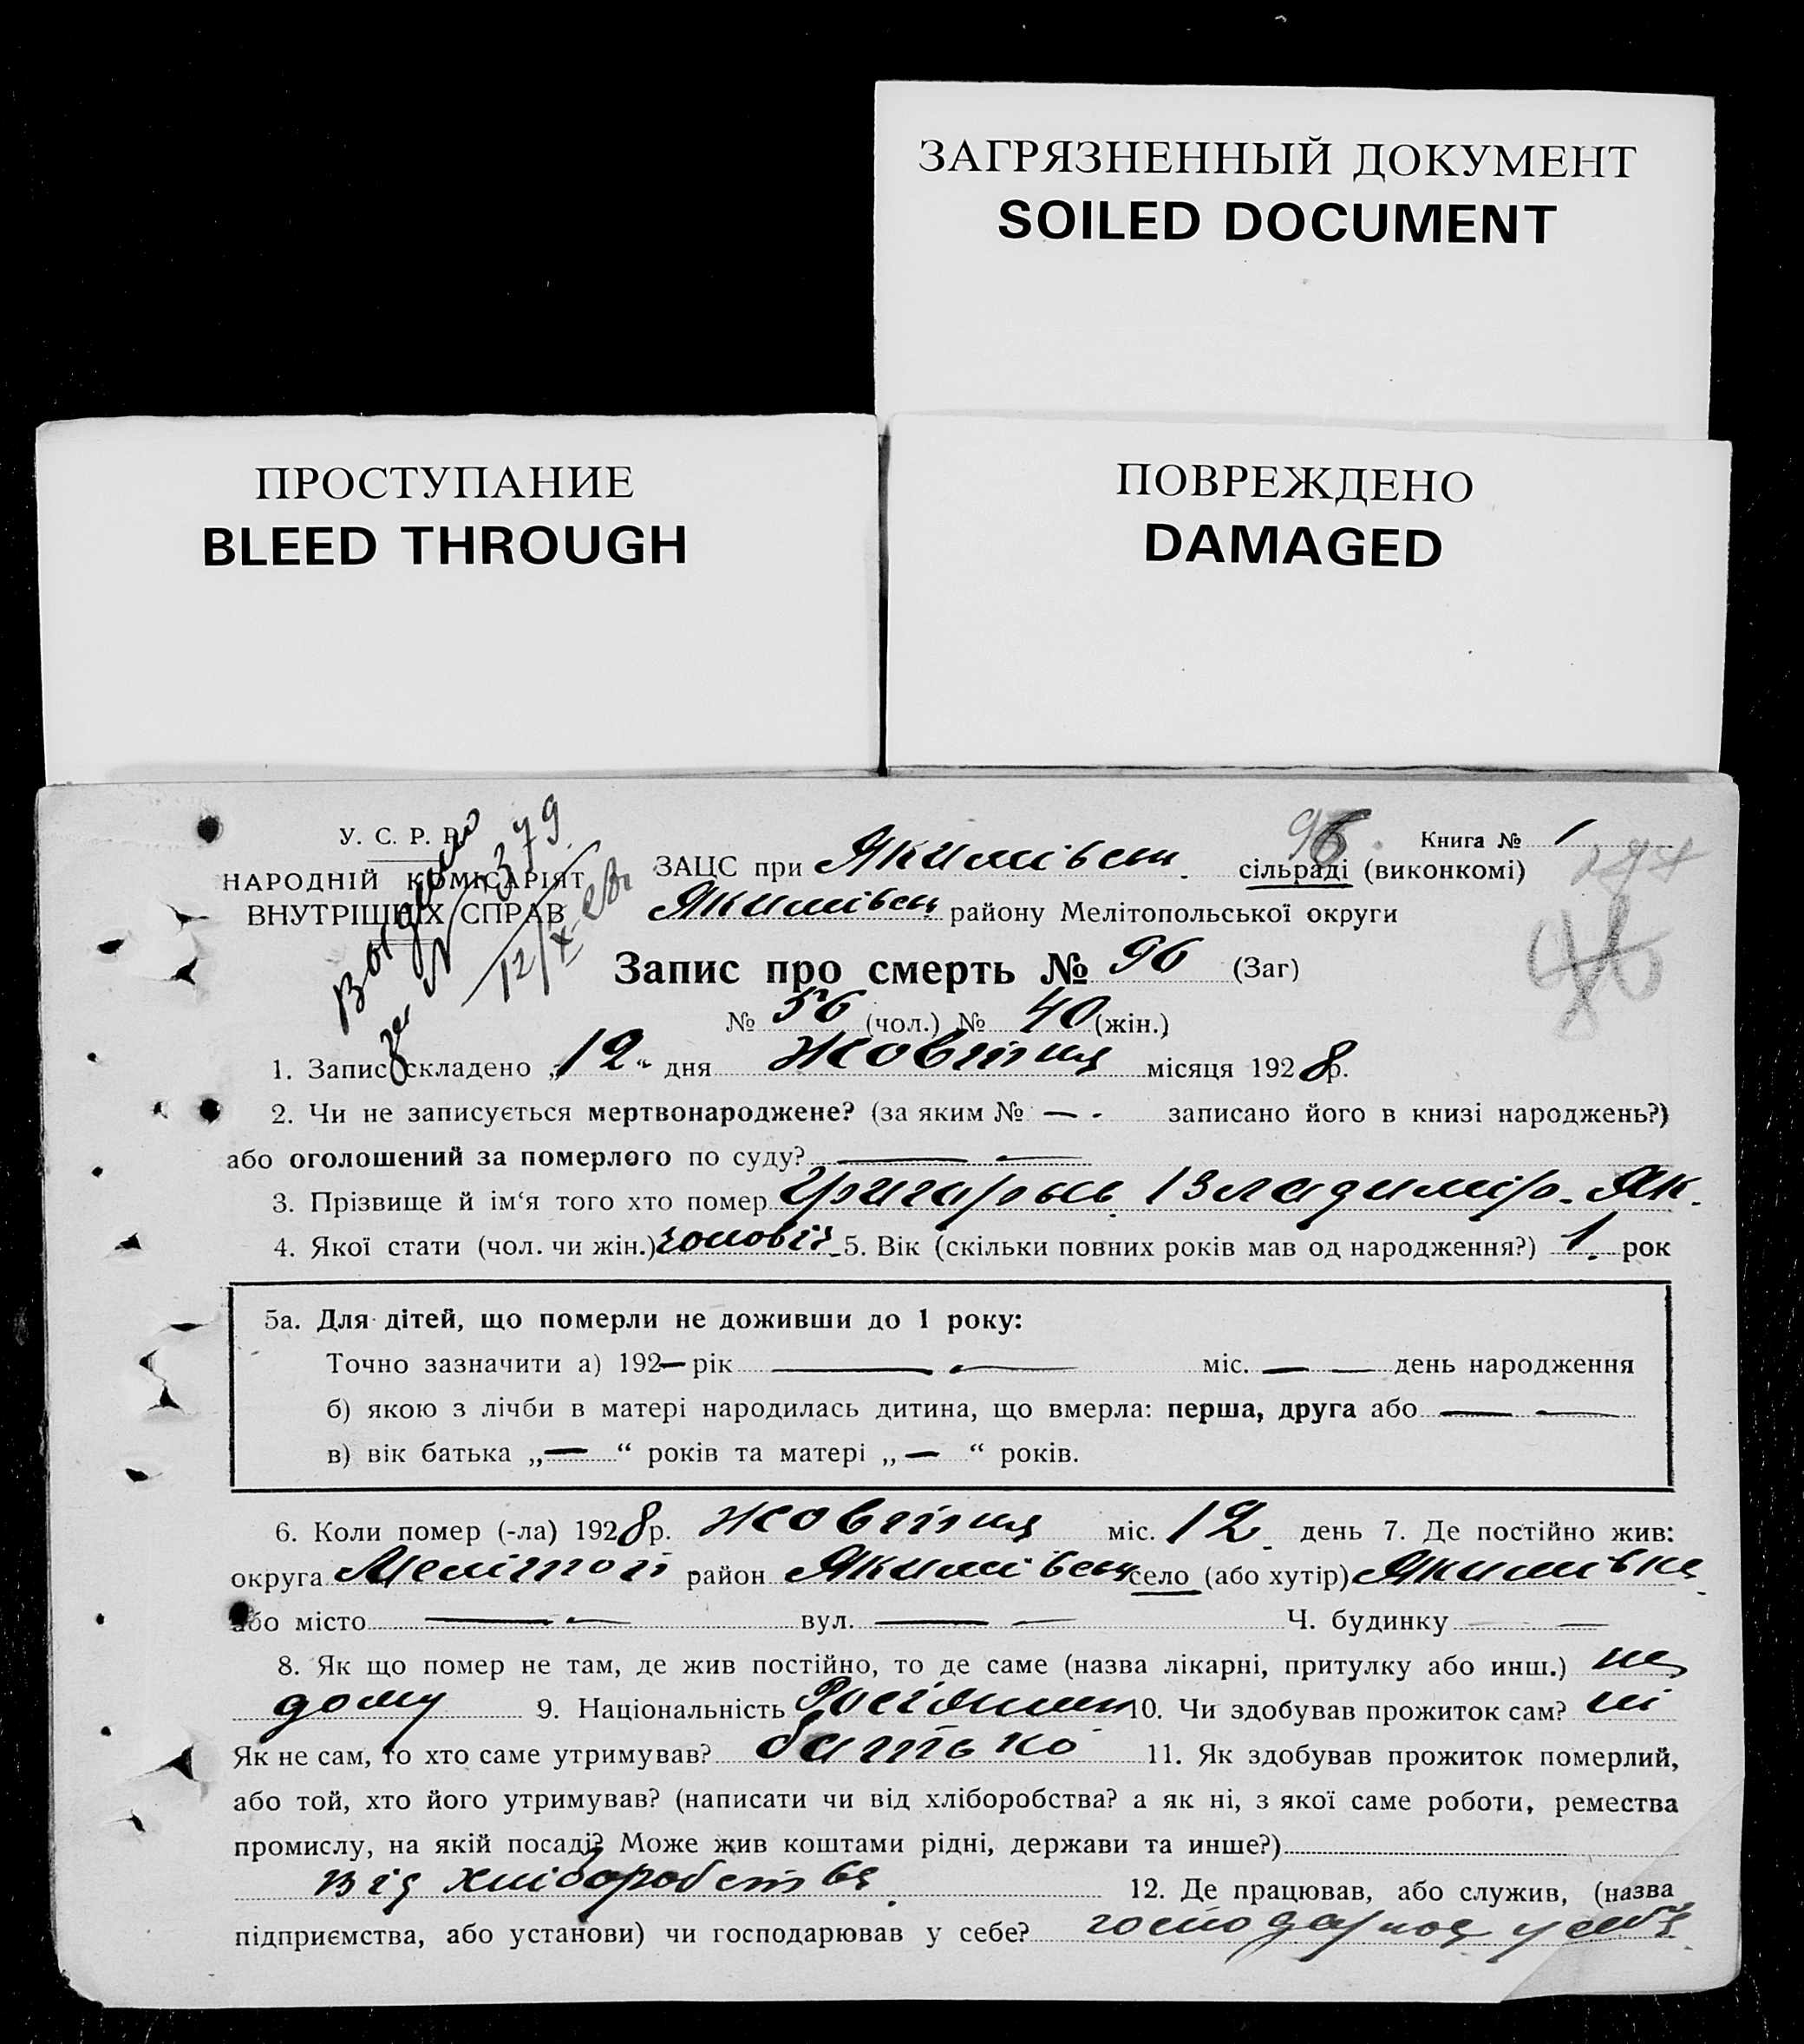 ЗАГРЯЗНЕННЫЙ ДОКУМЕНТ
SOILED DOCUMENT
ПРОСТУПАНИЕ
BLEED THROUGH
ПОВРЕЖДЕНО
DAMAGED
У. С. Р. Р.
НАРОДНІЙ КОМІСАРІЯТ
ВНУТРІШНІХ СПРАВ
за № 379
12/X
96
Книга № 1
ЗАЦС при Якимівськ. сільраді (виконкомі)
Якимівськ району Мелітопольської округи
Запис про смерть № 96 (Заг)
№ 56 (чол.) № 40 (жін.)
46
1. Запис складено „12“ дня Жовтня місяця 1928 р.
2. Чи не записується мертвонароджене? (за яким № — - записано його в книзі народжень?)
або оголошений за померлого по суду? — —
3. Прізвище й ім‘я того хто помер Владимір. Як.
4. Якої стати (чол. чи жін.) чоловіч. 5. Вік (скільки повних років мав од народження?) 1. рок
5а. Для дітей, що померли не доживши до 1 року:
Точно зазначити а) 192— рік — — міс. — — день народження
б) якою з лічби в матері народилась дитина, що вмерла: перша, друга або — —
в) вік батька „—“ років та матері „—“ років.
6. Коли помер (-ла) 1928 р. Жовтня міс. 12. день 7. Де постійно жив:
округа Мелітоп район Якимівськ село (або хутір) Якимівка
або місто — — вул. — — Ч. будинку — —
8. Як що помер не там, де жив постійно, то де саме (назва лікарні, притулку або инш.) на
дому 9. Національність 10. Чи здобував прожиток сам? ні
Як не сам, то хто саме утримував? батько 11. Як здобував прожиток померлий,
або той, хто його утримував? (написати чи від хліборобства? а як ні, з якої саме роботи, ремества
промислу, на якій посаді? Може жив коштами рідні, держави та инше?)
від хліборобства. 12. Де працював, або служив, (назва
підприємства, або установи) чи господарював у себе? у себе